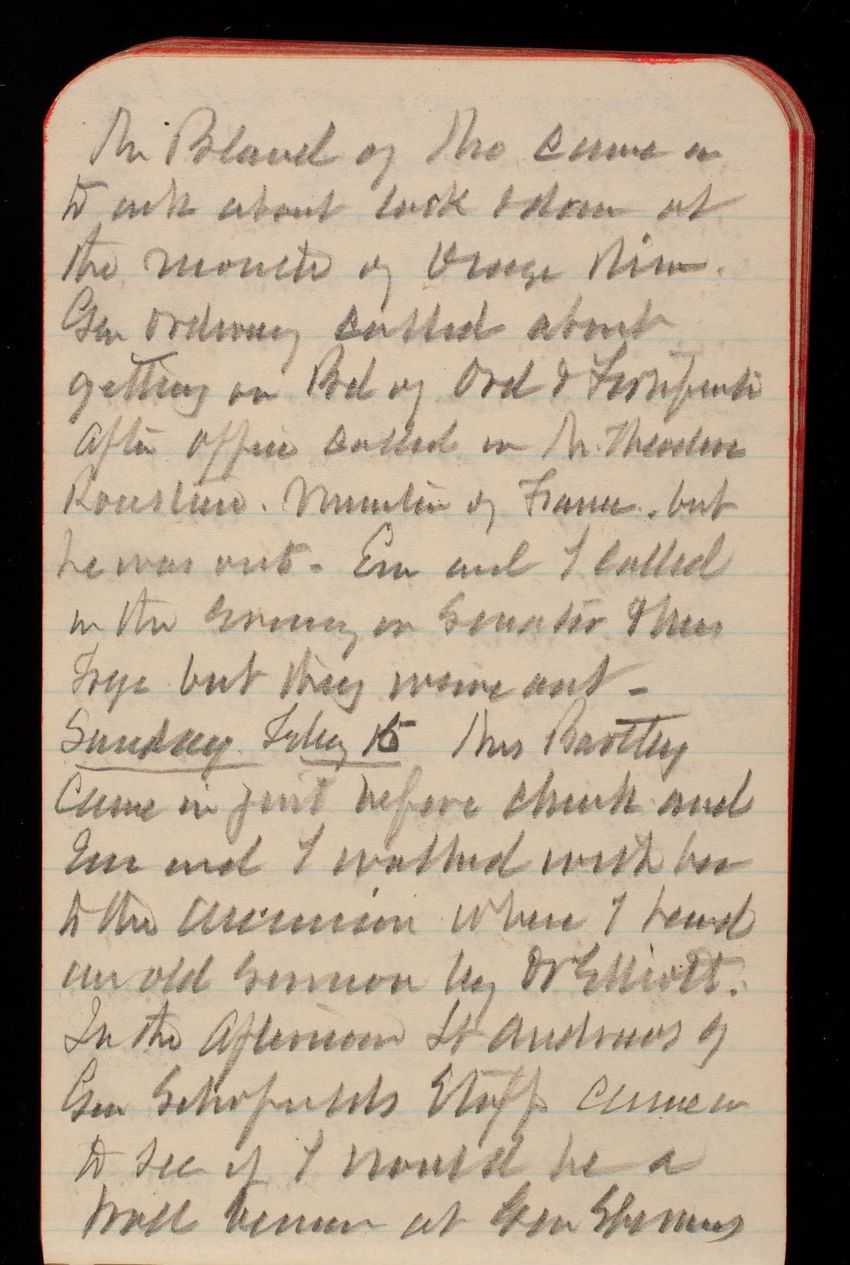 Mr Bland of Mo came in
to ask about lock down at
the mouth of Osage River.
Gen Ordway called about
getting on Bd of Ord & Fortificati
After office called on Mr Theodore
Roustan. Minister of France. but
he was out - Em and I called
in the evening on Senator & Mrs
Frye but they were out -
Sunday Feby 15 Mrs Bartley
came in just before church and
Em and I walked with her
to the Ascension where I heard
an old sermon by Dr Elliott.
In the afternoon Lt Andrews of
Gen Schofields Staff came in
to see if I would be a
Pall bearer at Gen Shermans